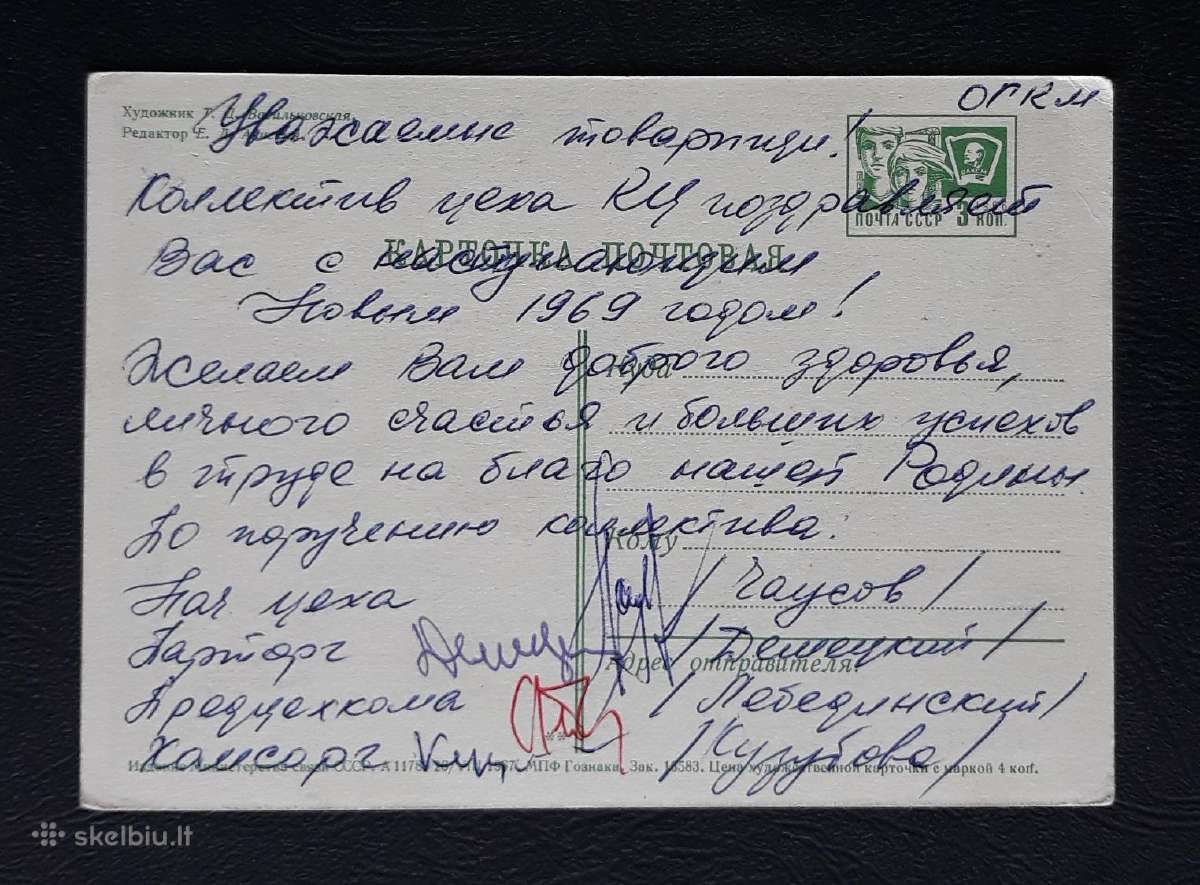 ОГКМ
Художник Г.
Редактор Е.
Уважаемые товарищи!
ПОЧТА СССР 3 КОП.
Коллектив цеха КЦ поздравляет
КАРТОЧКА ПОЧТОВАЯ
Вас с наступающим
Новым 1969 годом!
Желаем Вам доброго здоровья,
Куда
личного счастья и больших успехов
в труде на благо нашей Родины.
По поручению коллектива:
Кому
Нач цеха /Чаусов/
Парторг /Демецкий/
Адрес отправителя:
Предцехкома /Лебединский/
Комсорг /Кугубова/
Издание Министерства связи СССР. А 1178 МПФ Гознака. Зак. Цена художественной карточки с маркой 4 коп.
skelbiu.lt